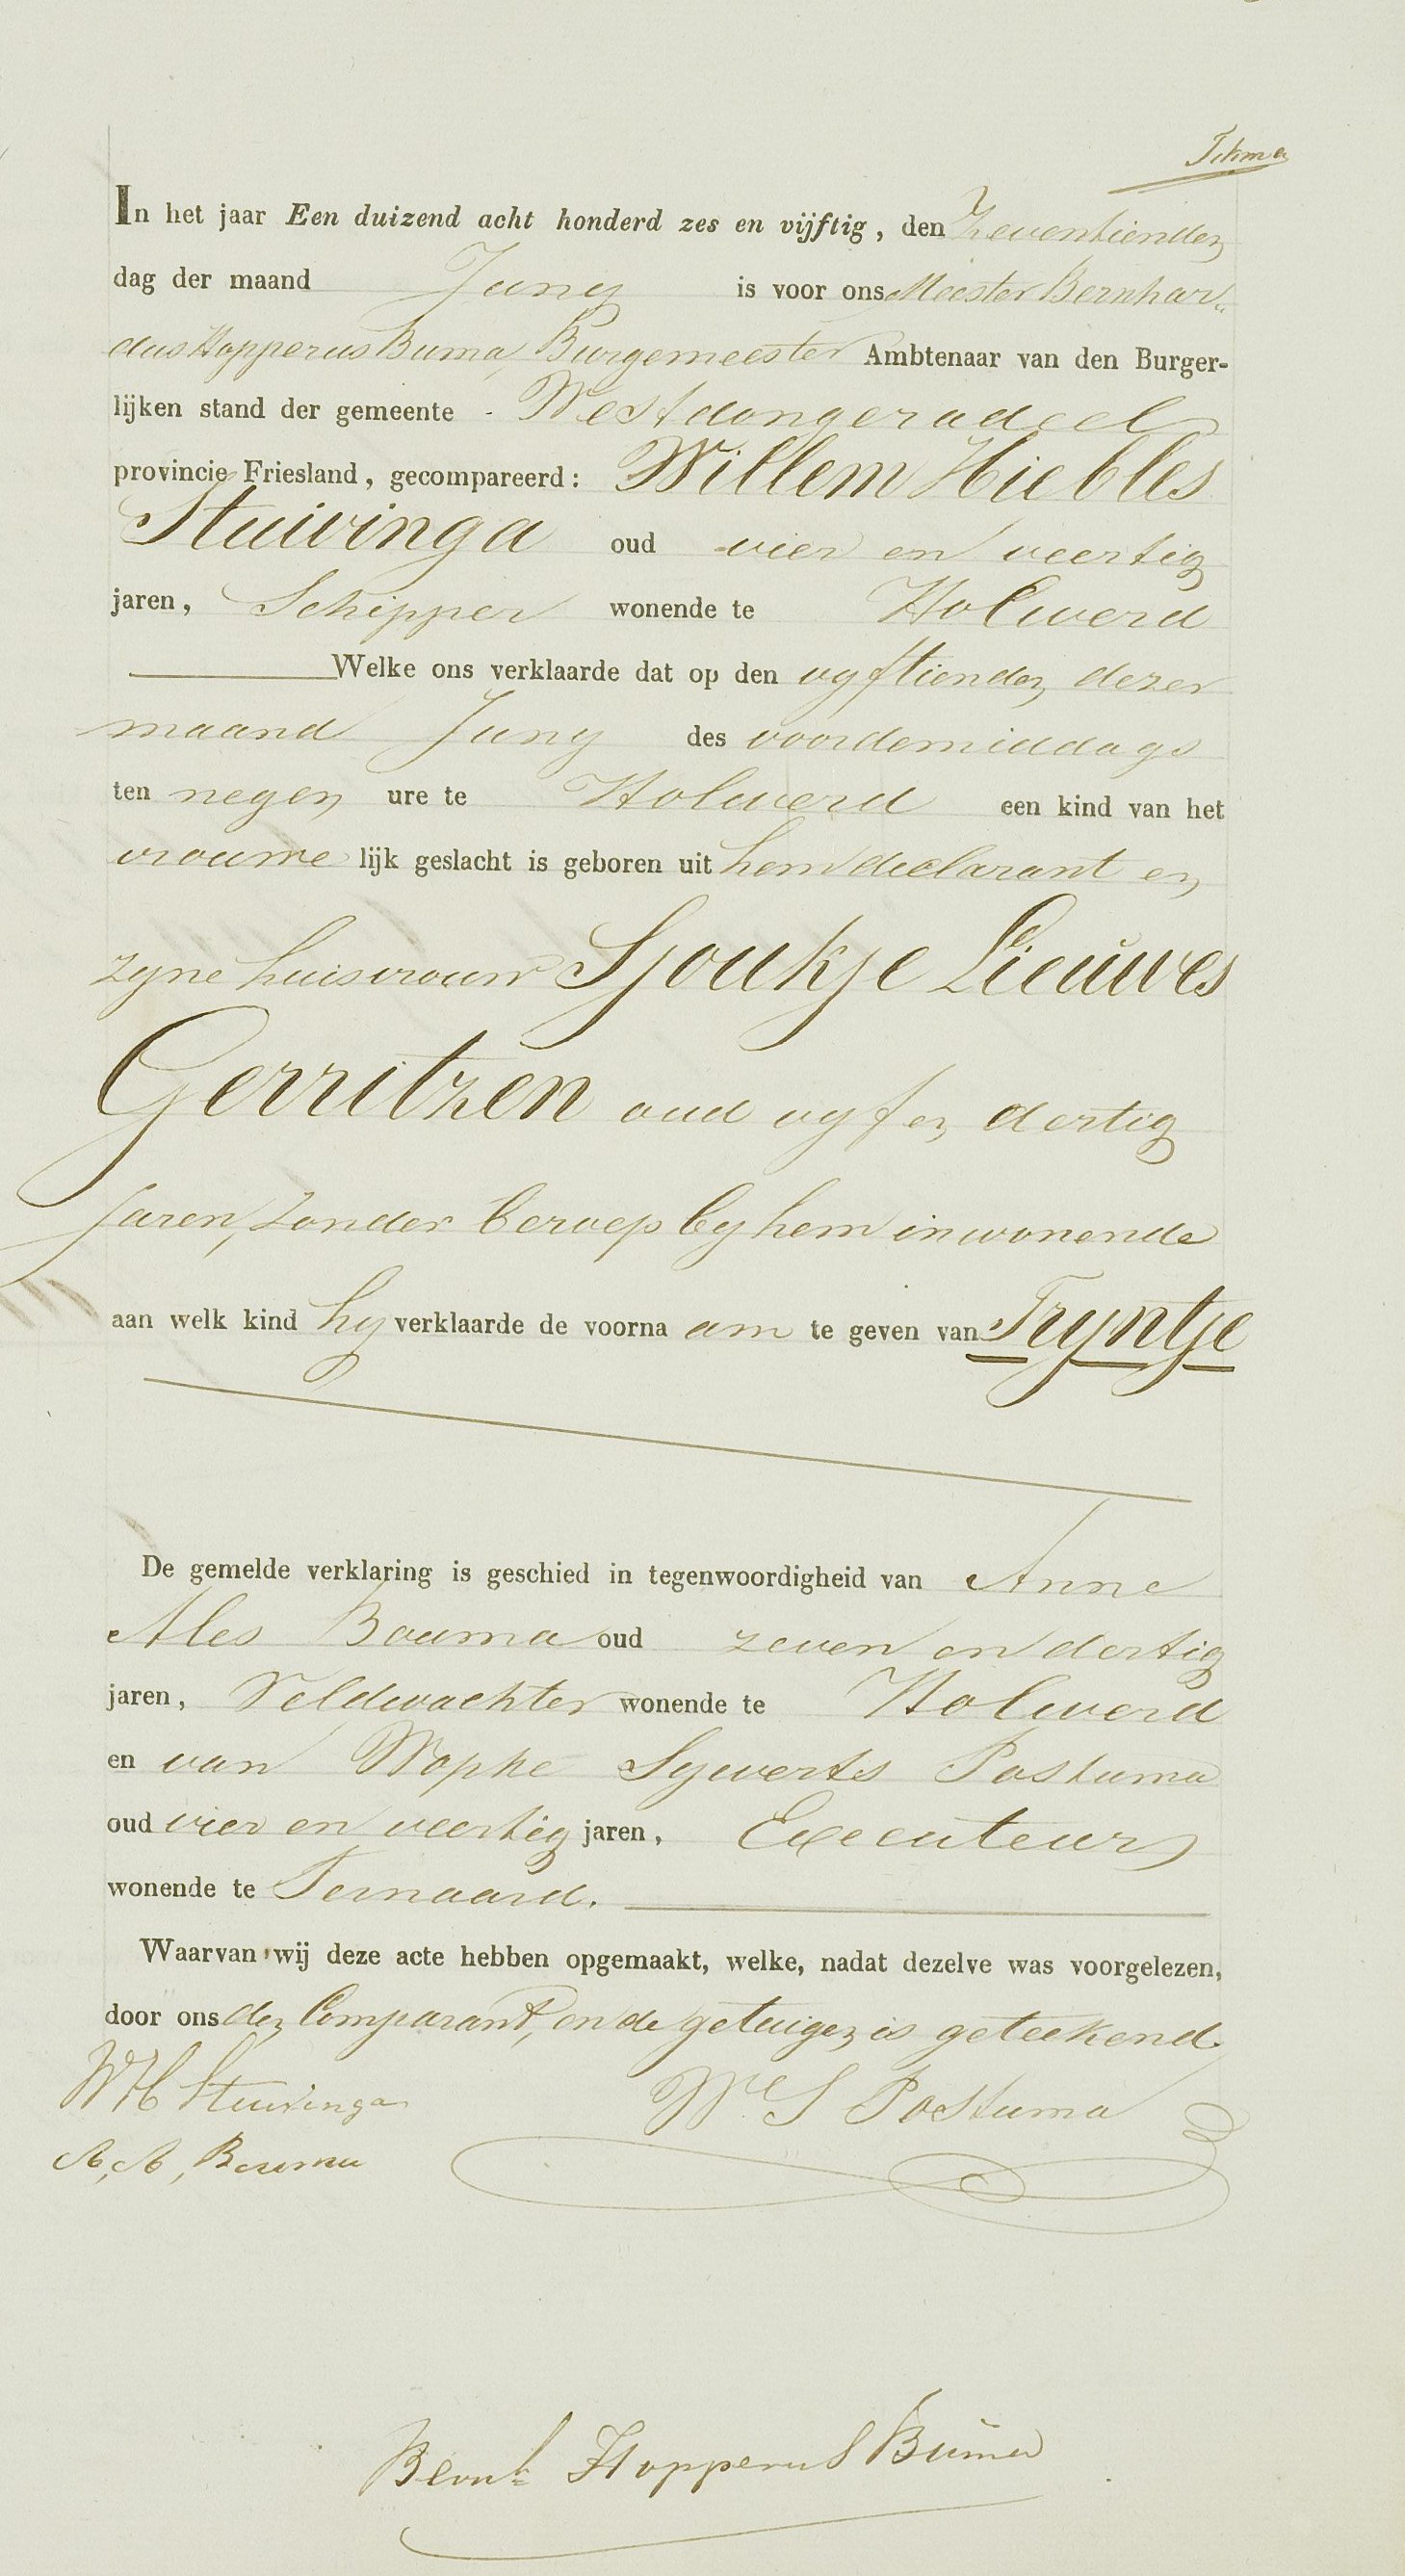 In het jaar Een duizend acht honderd zes en vijftig, den Zeventienden
dag der maand Juny is voor ons Meester Bernhar-
dus Hopperus Buma, Burgemeester Ambtenaar van den Burger-
lijken stand der gemeente - Westdongeradeel
provincie Friesland, gecompareerd: Willem Hiebles
Stuivinga oud vier en veertig
jaren, Schipper wonende te Holwerd
Welke ons verklaarde dat op den vyftienden dezer
maand Juny des voordemiddags
ten negen ure te Holwerd een kind van het
vrouwe lijk geslacht is geboren uit hem declarant en
zyne huisvrouw Sjoukje Lieuwes
Gerritzen oud vyf en dertig
jaren, zonder beroep by hem inwonende
aan welk kind hy verklaarde de voorna am te geven van Tryntje
De gemelde verklaring is geschied in tegenwoordigheid van Anne
Ales Bouma oud zeven en dertig
jaren, Veldwachter wonende te Holwerd
en van Wopke Sywerts Postuma
oud vier en veertig jaren, Executeur
wonende te Ternaard.
Waarvan wij deze acte hebben opgemaakt, welke, nadat dezelve was voorgelezen,
door ons den Comparant, en de getuigen is geteekend.
WH Stuivinga W. S Postuma
A, A, Bouma
Bernh Hopperus Buma